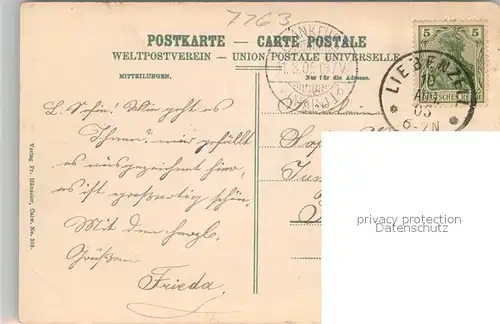 7763
POSTKARTE — CARTE POSTALE
WELTPOSTVEREIN — UNION POSTALE UNIVERSELLE
MITTEILUNGEN.
Nur für die Adresse.
5 5
LIEBENZELL
10
AUG
05
6-7N
L. Sofie! Wie geht es
Ihnen? mir gefällt
es ausgezeichnet hier,
es ist großartig schön.
Mit den herzl.
Grüßen
Frieda.
Verlag Fr. Häussler, Calw. No. 303.
privacy protection
Datenschutz